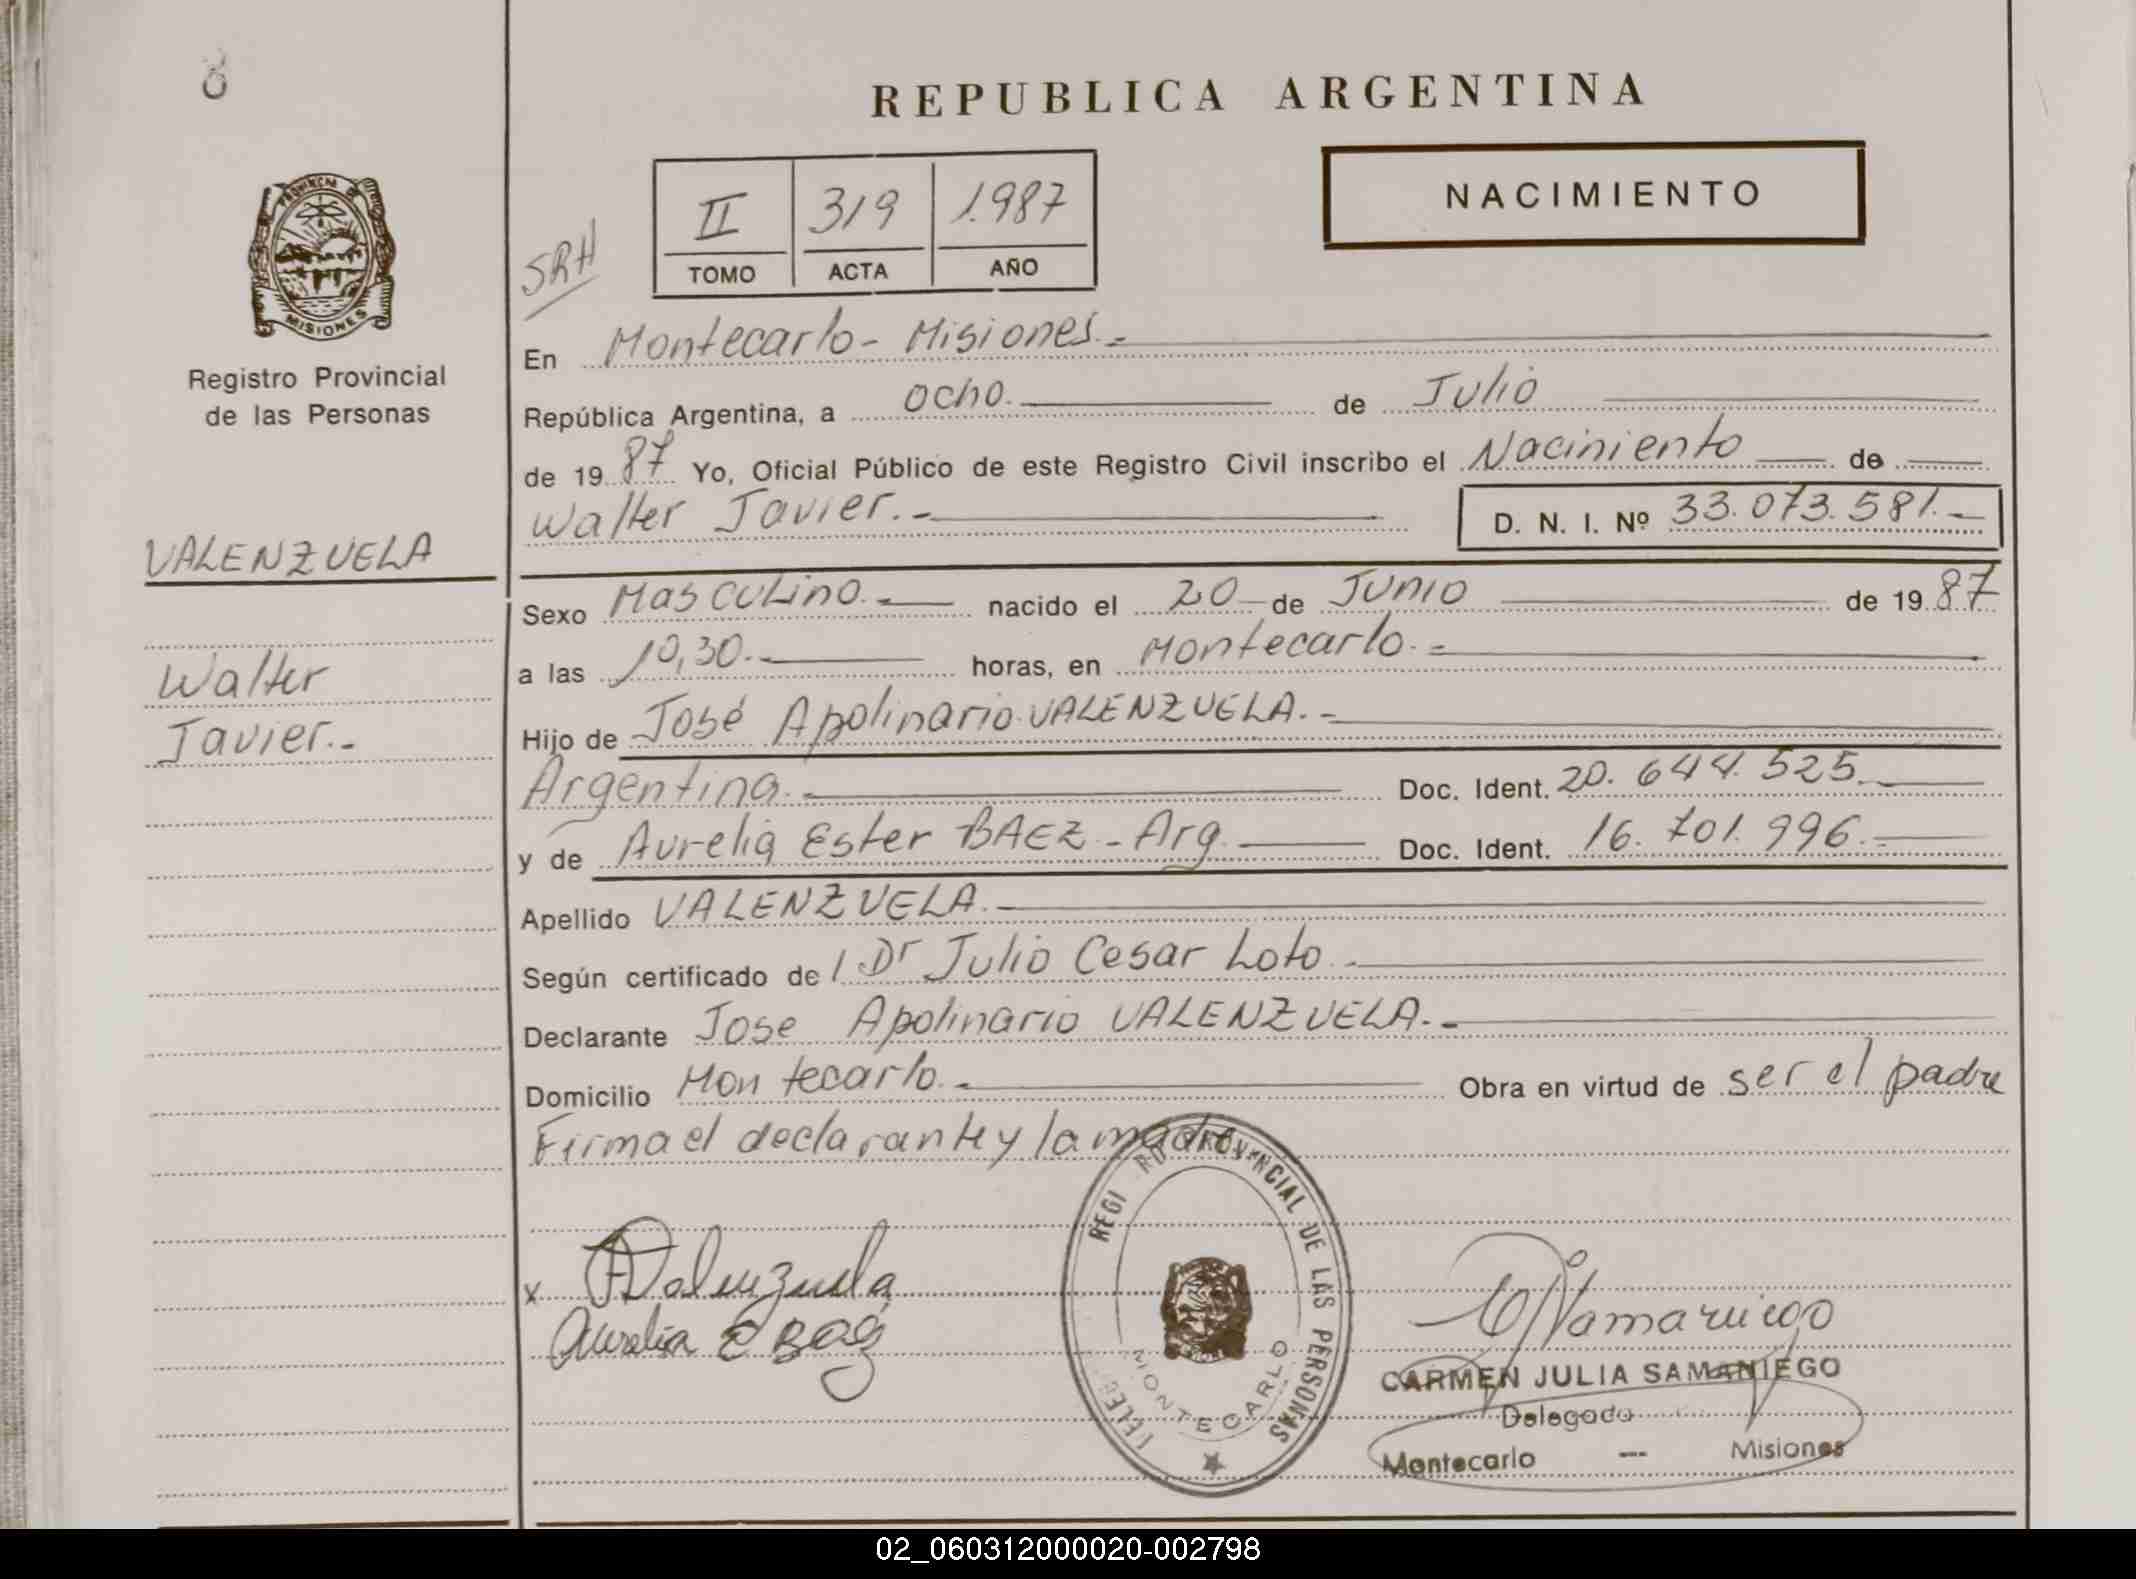 REPUBLICA ARGENTINA
NACIMIENTO
II 319 1.987
TOMO ACTA AÑO
SRH
PROVINCIA DE
MISIONES
Registro Provincial
de las Personas
VALENZUELA
Walter
Javier.-
En Montecarlo - Misiones.-
República Argentina, a ocho. de Julio
de 19 87 Yo, Oficial Público de este Registro Civil inscribo el Naciniento de
Walter Javier.- D. N. I. Nº 33.073.581.-
Sexo Masculino.- nacido el 20 de Junio de 19 87
a las 10,30.- horas, en Montecarlo.-
Hijo de José Apolinario VALENZUELA.-
Argentina.- Doc. Ident. 20.644.525.
y de Aurelia Ester BAEZ - Arg. Doc. Ident. 16.701.996.-
Apellido VALENZUELA.-
Según certificado de l Dr Julio Cesar Loto.-
Declarante Jose Apolinario VALENZUELA.-
Domicilio Montecarlo.- Obra en virtud de ser el padre
Firma el declarante y la madre
x Valenzuela
Aurelia E Baez
REGI RO PROVINCIAL DE LAS PERSONAS
MONTECARLO
CARMEN JULIA SAMANIEGO
Delegada
Montecarlo — Misiones
02_060312000020-002798